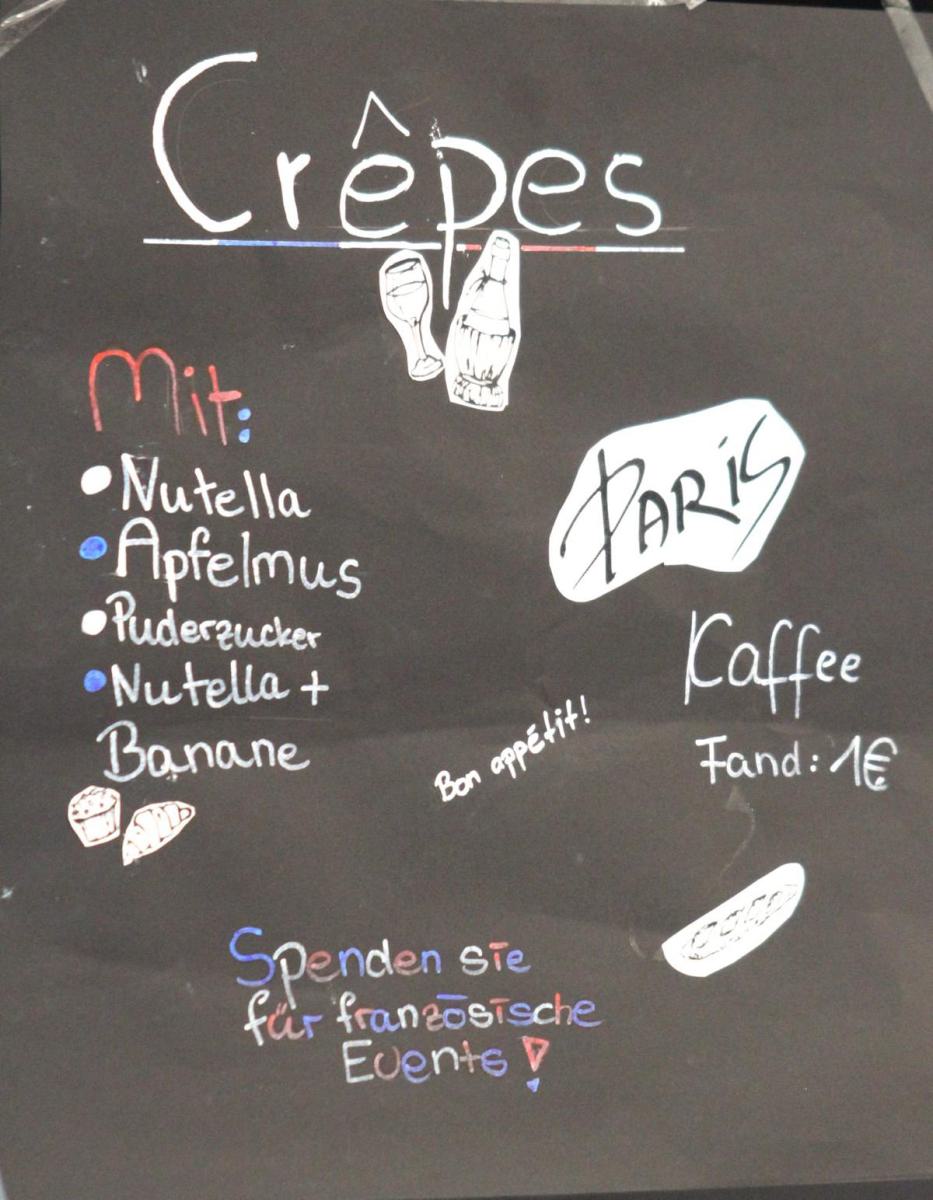 Crêpes
Mit:
• Nutella
• Apfelmus
• Puderzucker
• Nutella +
Banane
PARIS
Kaffee
Fand: 1€
Bon appétit!
Spenden sie
für französische
Events!